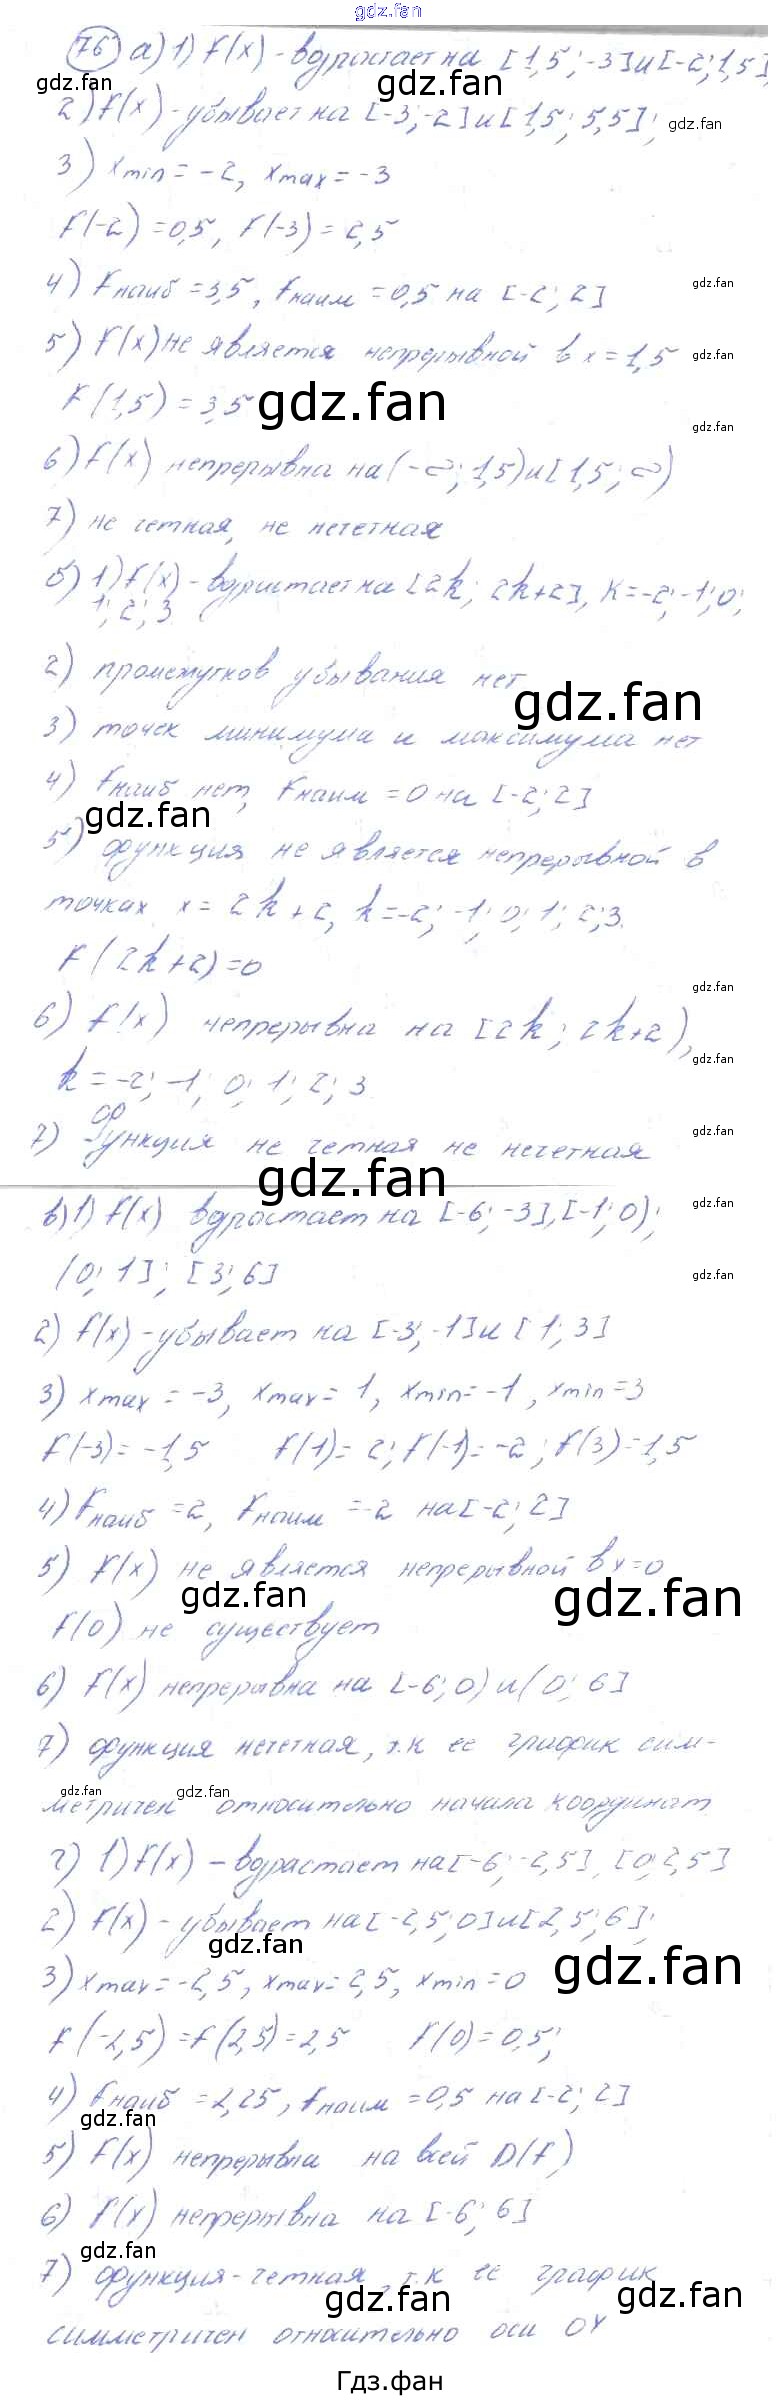 gdz.fan
76 а) 1) f(x) - возрастает на [1,5; -3] и [-2; 1,5],
gdz.fan gdz.fan
2) f(x) - убывает на [-3; -2] и [1,5; 5,5];
gdz.fan
3) xmin = -2, xmax = -3
f(-2) = 0,5, f(-3) = 2,5
4) fнаиб = 3,5, fнаим = 0,5 на [-2; 2]
gdz.fan
5) f(x) не является непрерывной в x = 1,5
gdz.fan
f(1,5) = 3,5
gdz.fan
gdz.fan
6) f(x) непрерывна на (-∞; 1,5) и [1,5; ∞)
7) не четная, не нечетная
б) 1) f(x) - возрастает на [2k; 2k+2], k = -2; -1; 0;
1; 2; 3
2) промежутков убывания нет
gdz.fan
3) точек минимума и максимума нет
4) fнаиб нет, fнаим = 0 на [-2; 2]
gdz.fan
5) функция не является непрерывной в
точках x = 2k+2, k = -2; -1; 0; 1; 2; 3.
f(2k+2) = 0
gdz.fan
6) f(x) непрерывна на [2k; 2k+2),
gdz.fan
k = -2; -1; 0; 1; 2; 3
gdz.fan
7) Функция не четная не нечетная
gdz.fan
gdz.fan
в) 1) f(x) возрастает на [-6; -3], [-1; 0);
(0; 1]; [3; 6]
gdz.fan
2) f(x) - убывает на [-3; -1] и [1; 3]
3) xmax = -3, xmax = 1, xmin = -1, xmin = 3
f(-3) = -1,5 f(1) = 2; f(-1) = -2; f(3) = 1,5
4) fнаиб = 2, fнаим = -2 на [-2; 2]
5) f(x) не является непрерывной в x=0
gdz.fan gdz.fan
f(0) не существует
6) f(x) непрерывна на [-6; 0) и (0; 6]
7) функция нечетная, т.к ее график сим-
gdz.fan gdz.fan
метричен относительно начала координат
г) 1) f(x) - возрастает на [-6; -2,5], [0; 2,5]
2) f(x) - убывает на [-2,5; 0] и [2,5; 6];
gdz.fan gdz.fan
3) xmax = -2,5, xmax = 2,5, xmin = 0
f(-2,5) = f(2,5) = 2,5 f(0) = 0,5;
4) fнаиб = 2,25, fнаим = 0,5 на [-2; 2]
gdz.fan
5) f(x) непрерывна на всей D(f)
6) f(x) непрерывна на [-6; 6]
gdz.fan
7) функция - четная, т.к ее график
gdz.fan gdz.fan
симметричен относительно оси OY
Гдз.фан